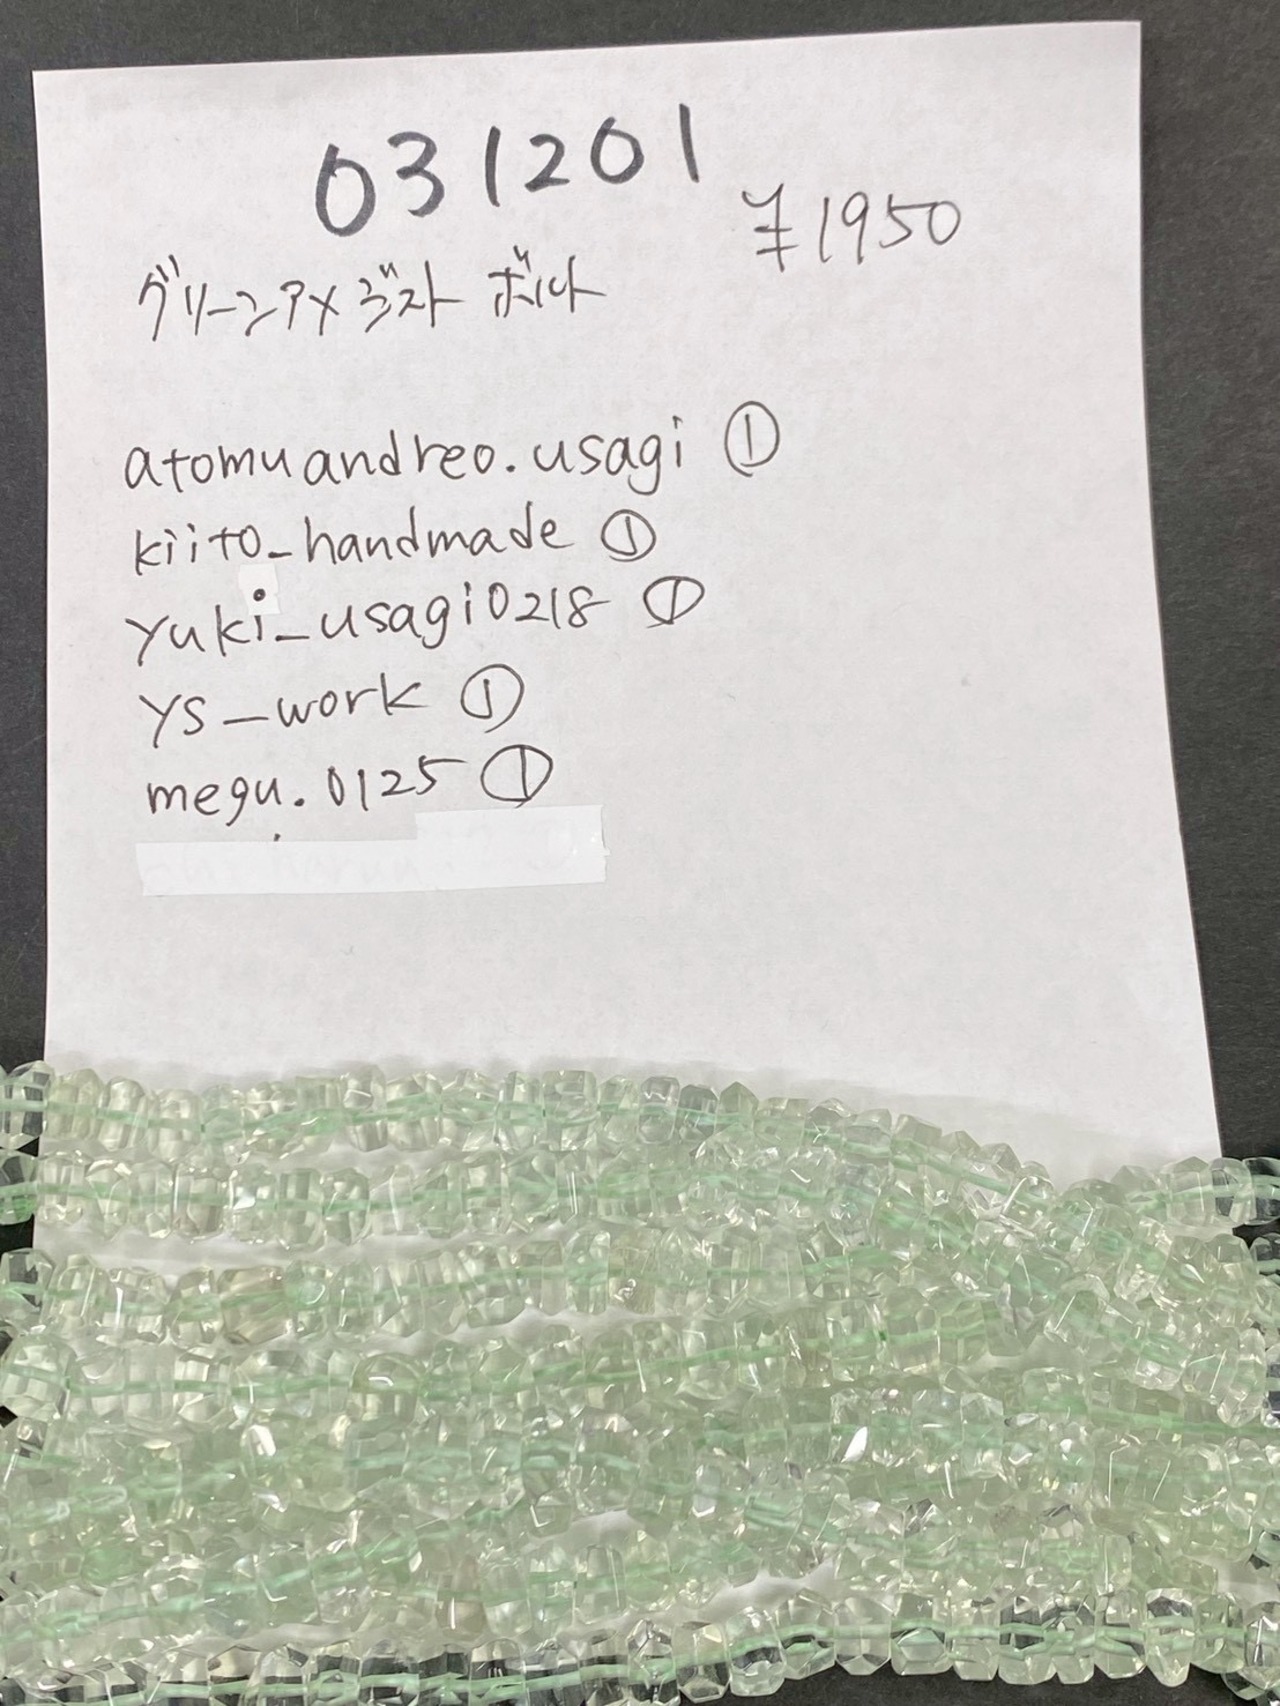 031201
¥1950
グリーンアメジスト ボルト
atomuandreo.usagi ①
kiito_handmade ①
yuki_usagi0218 ①
ys_work ①
megu.0125 ①